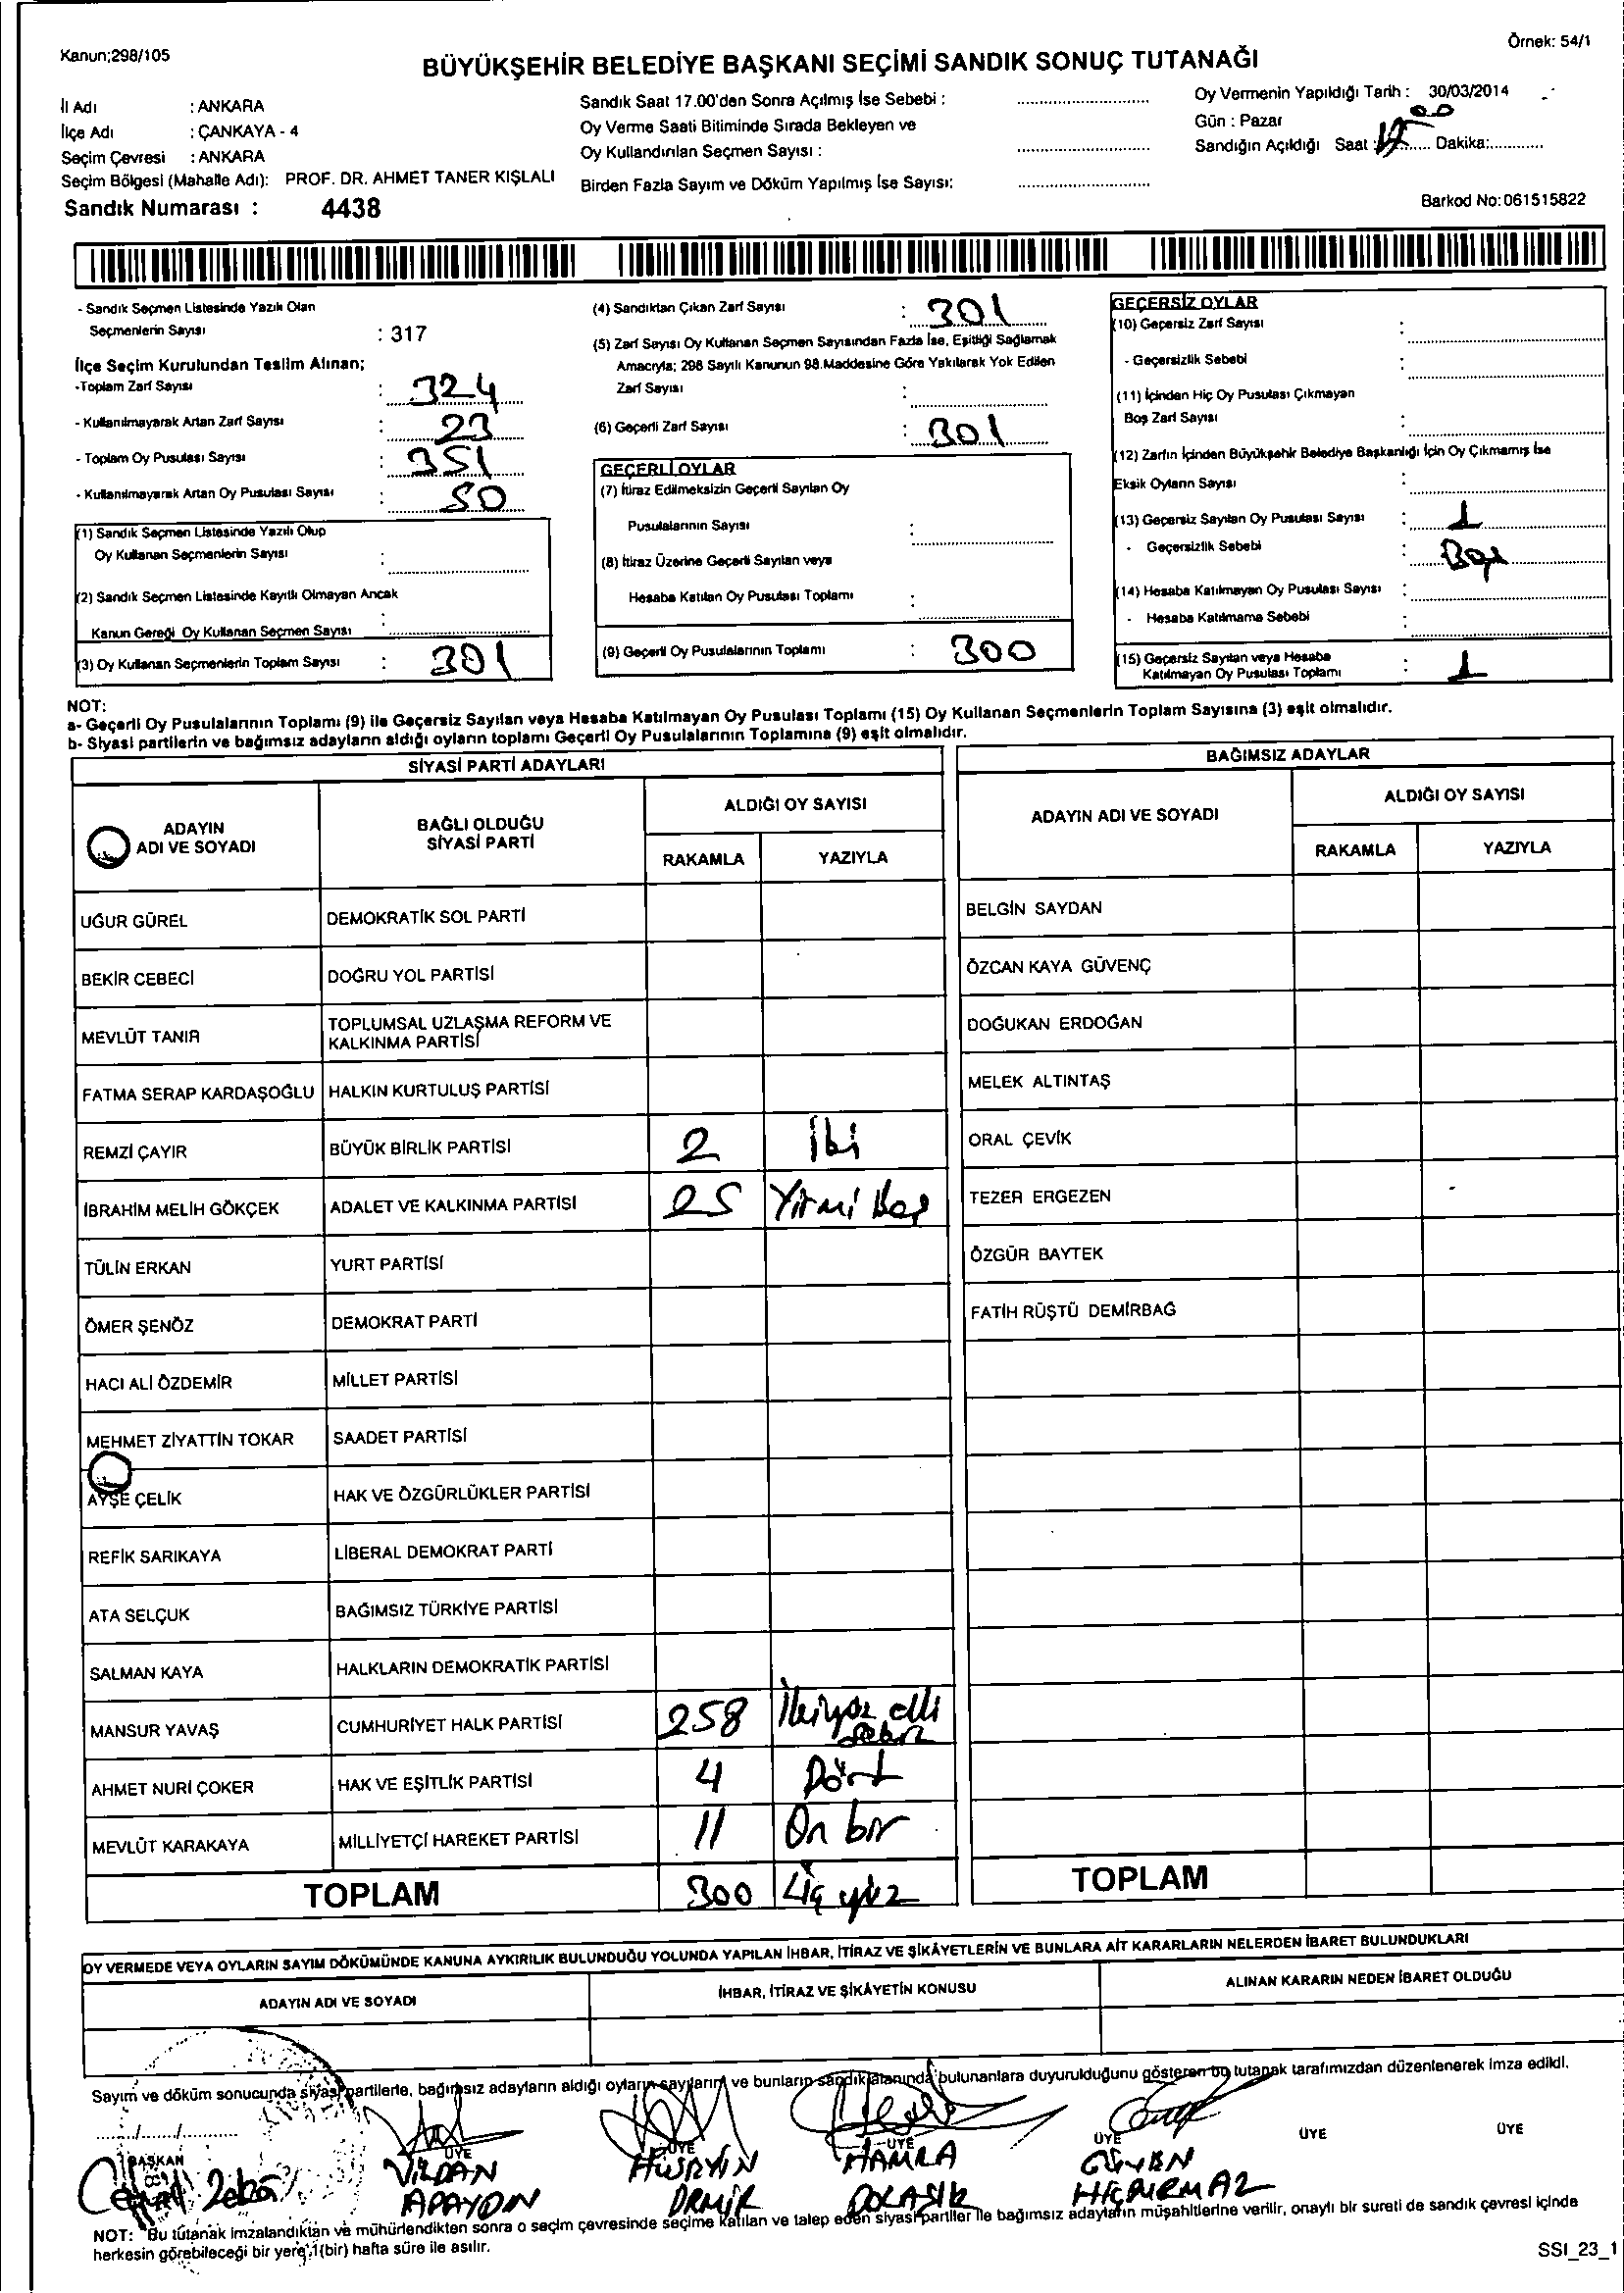 Kanun;298/105
Örnek: 54/1
BÜYÜKŞEHİR BELEDİYE BAŞKANI SEÇİMİ SANDIK SONUÇ TUTANAĞI
İl Adı : ANKARA
İlçe Adı : ÇANKAYA - 4
Seçim Çevresi : ANKARA
Seçim Bölgesi (Mahalle Adı): PROF. DR. AHMET TANER KIŞLALI
Sandık Numarası : 4438
Sandık Saat 17.00'den Sonra Açılmış İse Sebebi :
Oy Verme Saati Bitiminde Sırada Bekleyen ve
Oy Kullandırılan Seçmen Sayısı :
Birden Fazla Sayım ve Döküm Yapılmış İse Sayısı:
Oy Vermenin Yapıldığı Tarih : 30/03/2014
Gün : Pazar
Sandığın Açıldığı Saat : 17 00 Dakika:
Barkod No:061515822
- Sandık Seçmen Listesinde Yazılı Olan
Seçmenlerin Sayısı : 317
İlçe Seçim Kurulundan Teslim Alınan;
-Toplam Zarf Sayısı : 324
- Kullanılmayarak Artan Zarf Sayısı : 23
- Toplam Oy Pusulası Sayısı : 351
- Kullanılmayarak Artan Oy Pusulası Sayısı : 50
(1) Sandık Seçmen Listesinde Yazılı Olup
Oy Kullanan Seçmenlerin Sayısı :
(2) Sandık Seçmen Listesinde Kayıtlı Olmayan Ancak
Kanun Gereği Oy Kullanan Seçmen Sayısı :
(3) Oy Kullanan Seçmenlerin Toplam Sayısı : 301
(4) Sandıktan Çıkan Zarf Sayısı : 301
(5) Zarf Sayısı Oy Kullanan Seçmen Sayısından Fazla İse, Eşitliği Sağlamak
Amacıyla; 298 Sayılı Kanunun 98.Maddesine Göre Yakılarak Yok Edilen
Zarf Sayısı :
(6) Geçerli Zarf Sayısı : 301
GEÇERLİ OYLAR
(7) İtiraz Edilmeksizin Geçerli Sayılan Oy
Pusulalarının Sayısı :
(8) İtiraz Üzerine Geçerli Sayılan veya
Hesaba Katılan Oy Pusulası Toplamı :
(9) Geçerli Oy Pusulalarının Toplamı : 300
GEÇERSİZ OYLAR
(10) Geçersiz Zarf Sayısı :
- Geçersizlik Sebebi :
(11) İçinden Hiç Oy Pusulası Çıkmayan
Boş Zarf Sayısı :
(12) Zarfın İçinden Büyükşehir Belediye Başkanlığı İçin Oy Çıkmamış İse
Eksik Oyların Sayısı :
(13) Geçersiz Sayılan Oy Pusulası Sayısı : 1
- Geçersizlik Sebebi : Boş
(14) Hesaba Katılmayan Oy Pusulası Sayısı :
- Hesaba Katılmama Sebebi :
(15) Geçersiz Sayılan veya Hesaba
Katılmayan Oy Pusulası Toplamı : 1
NOT:
a- Geçerli Oy Pusulalarının Toplamı (9) ile Geçersiz Sayılan veya Hesaba Katılmayan Oy Pusulası Toplamı (15) Oy Kullanan Seçmenlerin Toplam Sayısına (3) eşit olmalıdır.
b- Siyasi partilerin ve bağımsız adayların aldığı oyların toplamı Geçerli Oy Pusulalarının Toplamına (9) eşit olmalıdır.
SİYASİ PARTİ ADAYLARI
ADAYIN
ADI VE SOYADI
BAĞLI OLDUĞU
SİYASİ PARTİ
ALDIĞI OY SAYISI
RAKAMLA YAZIYLA
UĞUR GÜREL DEMOKRATİK SOL PARTİ
BEKİR CEBECİ DOĞRU YOL PARTİSİ
MEVLÜT TANIR TOPLUMSAL UZLAŞMA REFORM VE
KALKINMA PARTİSİ
FATMA SERAP KARDAŞOĞLU HALKIN KURTULUŞ PARTİSİ
REMZİ ÇAYIR BÜYÜK BİRLİK PARTİSİ 2 İki
İBRAHİM MELİH GÖKÇEK ADALET VE KALKINMA PARTİSİ 25 Yirmi beş
TÜLİN ERKAN YURT PARTİSİ
ÖMER ŞENÖZ DEMOKRAT PARTİ
HACI ALİ ÖZDEMİR MİLLET PARTİSİ
MEHMET ZİYATTİN TOKAR SAADET PARTİSİ
AYŞE ÇELİK HAK VE ÖZGÜRLÜKLER PARTİSİ
REFİK SARIKAYA LİBERAL DEMOKRAT PARTİ
ATA SELÇUK BAĞIMSIZ TÜRKİYE PARTİSİ
SALMAN KAYA HALKLARIN DEMOKRATİK PARTİSİ
MANSUR YAVAŞ CUMHURİYET HALK PARTİSİ 258 İkiyüz elli
sekiz
AHMET NURİ ÇOKER HAK VE EŞİTLİK PARTİSİ 4 Dört
MEVLÜT KARAKAYA MİLLİYETÇİ HAREKET PARTİSİ 11 On bir
TOPLAM 300 Üç yüz
BAĞIMSIZ ADAYLAR
ADAYIN ADI VE SOYADI
ALDIĞI OY SAYISI
RAKAMLA YAZIYLA
BELGİN SAYDAN
ÖZCAN KAYA GÜVENÇ
DOĞUKAN ERDOĞAN
MELEK ALTINTAŞ
ORAL ÇEVİK
TEZER ERGEZEN
ÖZGÜR BAYTEK
FATİH RÜŞTÜ DEMİRBAĞ
TOPLAM
OY VERMEDE VEYA OYLARIN SAYIM DÖKÜMÜNDE KANUNA AYKIRILIK BULUNDUĞU YOLUNDA YAPILAN İHBAR, İTİRAZ VE ŞİKÂYETLERİN VE BUNLARA AİT KARARLARIN NELERDEN İBARET BULUNDUKLARI
ADAYIN ADI VE SOYADI
İHBAR, İTİRAZ VE ŞİKÂYETİN KONUSU
ALINAN KARARIN NEDEN İBARET OLDUĞU
Sayım ve döküm sonucunda siyasi partilerle, bağımsız adayların aldığı oyların sayılarını ve bunların sandık alanında bulunanlara duyurulduğunu gösteren bu tutanak tarafımızdan düzenlenerek imza edildi.
BAŞKAN ÜYE ÜYE ÜYE ÜYE ÜYE ÜYE
VİLDAN HÜSEYİN HAMRA GÜVEN
APAYDIN
NOT: Bu tutanak imzalandıktan ve mühürlendikten sonra o seçim çevresinde seçime katılan ve talep eden siyasi partiler ile bağımsız adayların müşahitlerine verilir, onaylı bir sureti de sandık çevresi içinde
herkesin görebileceği bir yere 1(bir) hafta süre ile asılır.
SSI_23_1